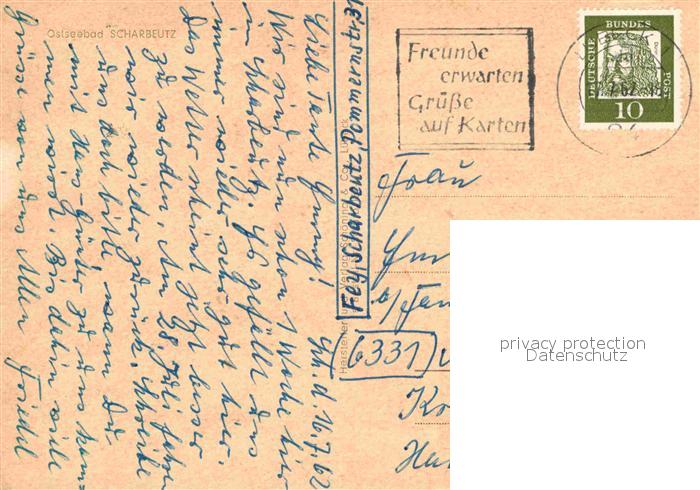 Ostseebad SCHARBEUTZ
Sch. d. 16.7.62
Liebe Tante Emmy!
Wir sind nun schon 1 Woche hier
in Scharbeutz. Es gefällt uns
immer wieder sehr gut hier.
Das Wetter scheint jetzt besser
zu werden. Am 28 Juli fahren
wir wieder zurück. Schreibe
uns doch bitte, wann Du
mit Hans-Günter zu uns kom-
men wirst. Bis dahin viele
Grüße von uns Allen
Fey, Scharbeutz, Pommernstr.
Hersteller und Verlag Schöning & Co., Lübeck
Freunde
erwarten
Grüße
auf Karten
DEUTSCHE
BUNDES
POST
10
Frau
6331
privacy protection
Datenschutz